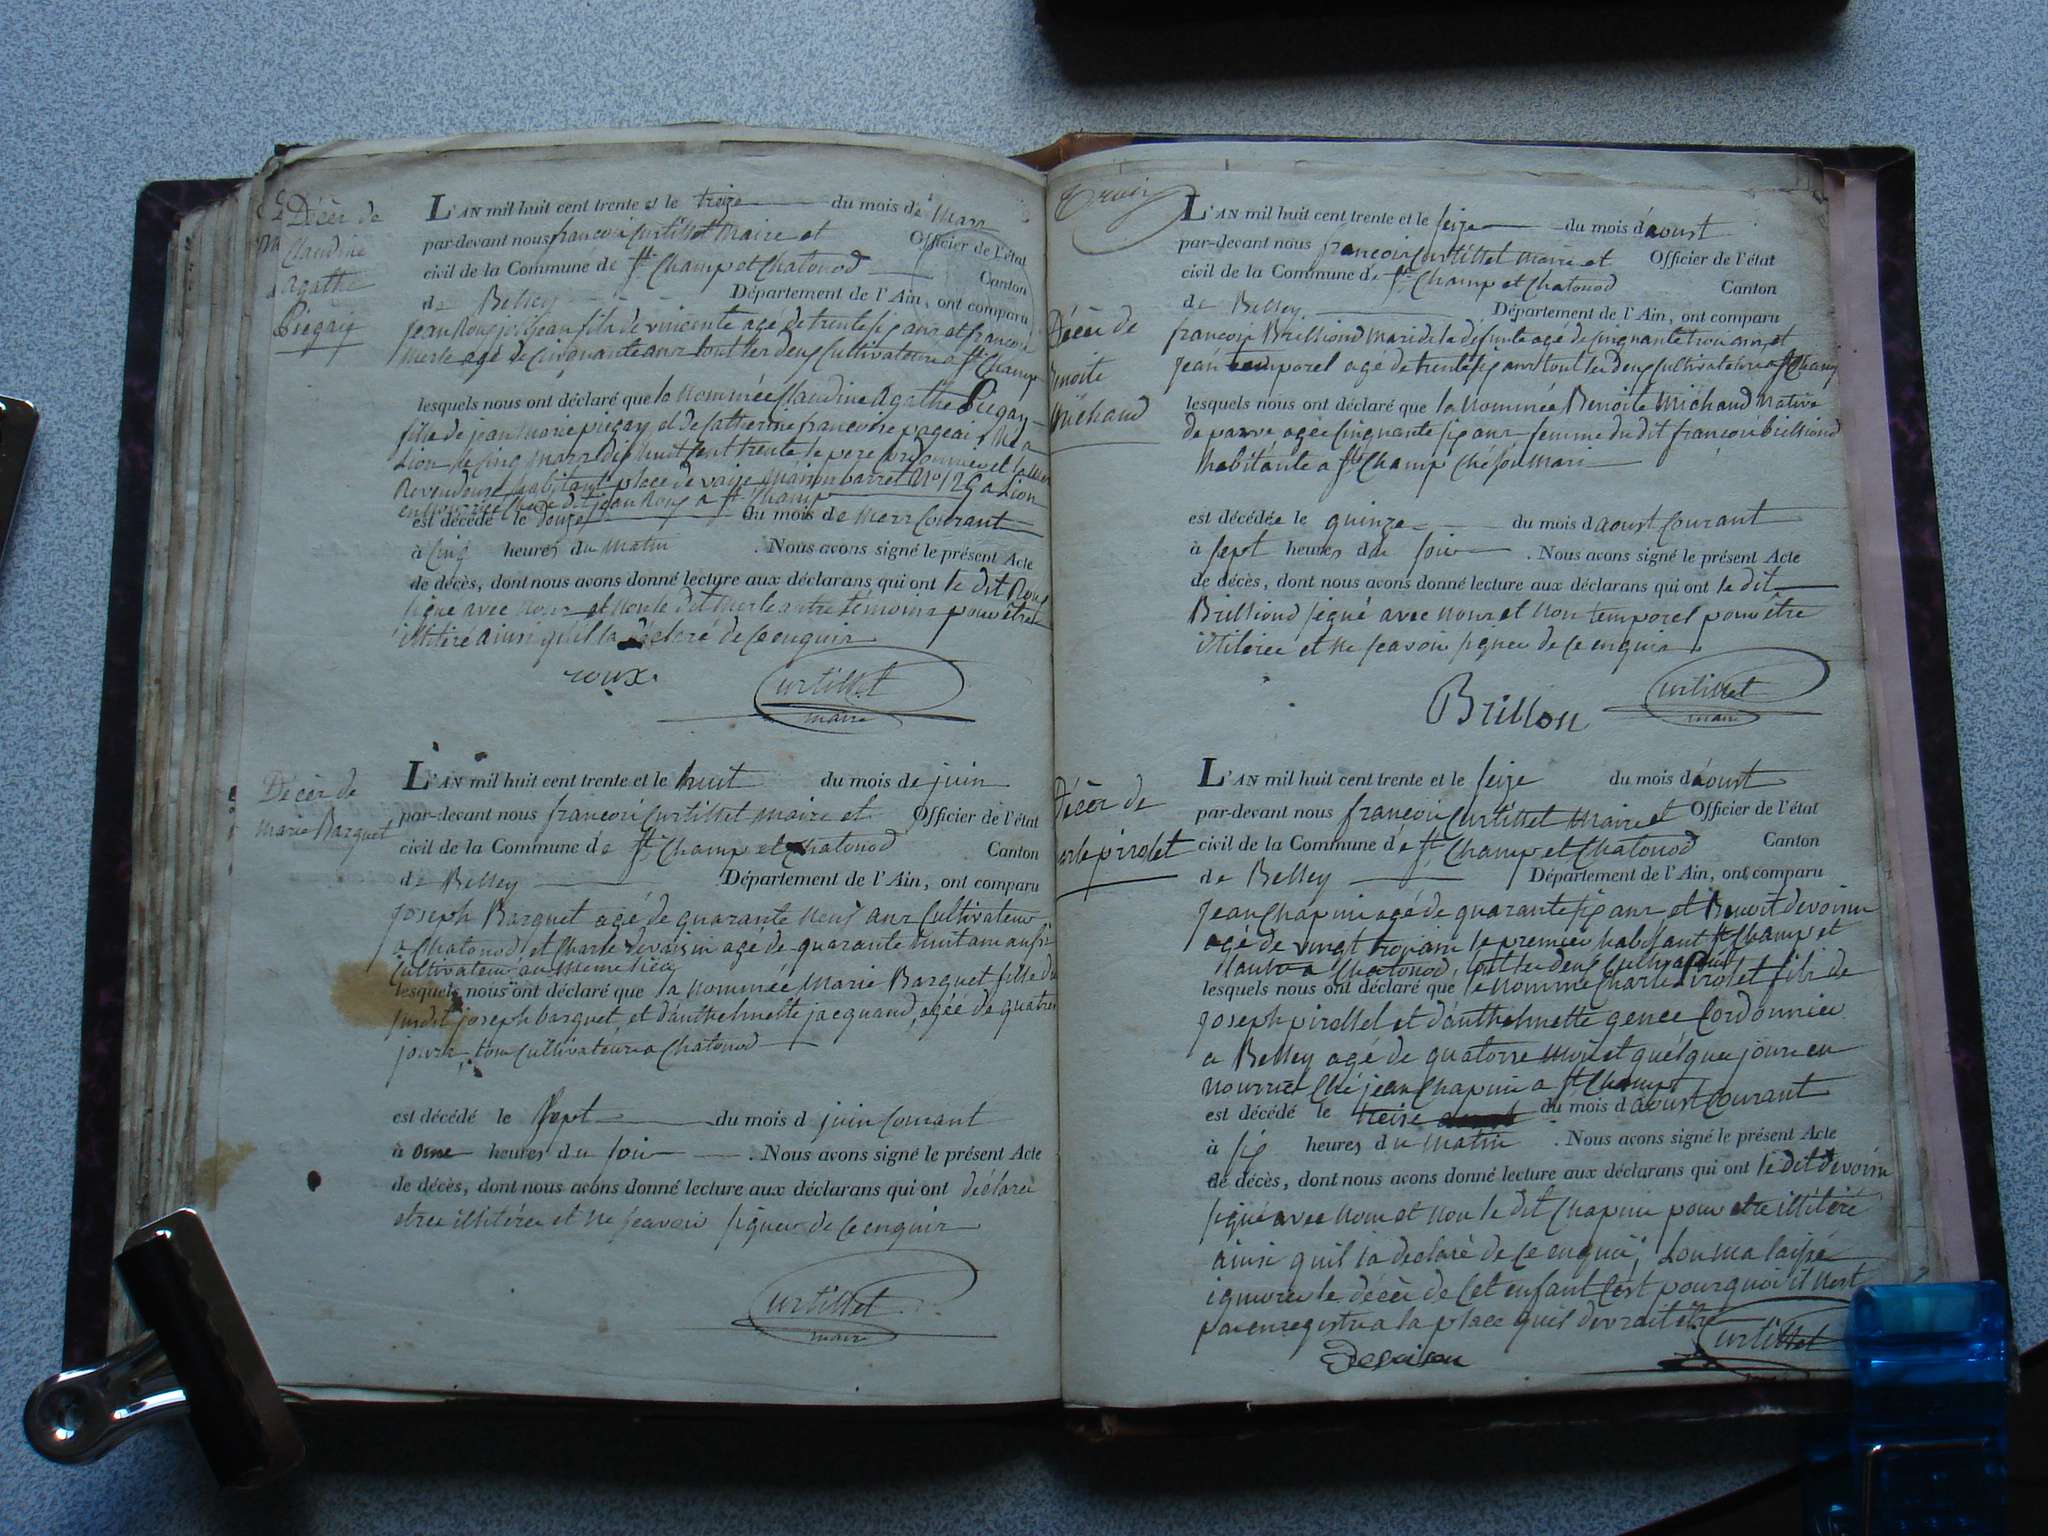 Décèr de
Claudine
agathe
Piegaiy
L'AN mil huit cent trente et le treize du mois de Marr
par-devant nous francoir Curtillet Maire et Officier de l'état
civil de la Commune de St Champ et Chatonod Canton
de Belley Département de l'Ain, ont comparu
jean Roux jolijean fils de vincente agé de trente six anr et francoir
Merle agé de Cinquante anr tout les deux Cultivateurs a St Champ
lesquels nous ont déclaré que la Nommée Claudine Agathe Piegay
fille de jean Marie piegay et de Catherine francoise
Lion le Cinq Marr dix huit Cent trente le pere et la
Revendeuse habitant place de Maison barret No 126 a Lion
en jean Roux a St Champ
est décédé le Douze du mois de Marr Courant
à Cinq heures du Matin . Nous avons signé le présent Acte
de décès, dont nous avons donné lecture aux déclarans qui ont le dit Roux
signé avec nour et non le dit Merle autre témoinr pour être
illitéré ainsi quil la déclaré de Ce enquir
roux.
Curtillet
maire
Décèr de
Marie Barquet
L'AN mil huit cent trente et le huit du mois de juin
par-devant nous francoir Curtillet Maire et Officier de l'état
civil de la Commune de St Champ et Chatonod Canton
de Belley Département de l'Ain, ont comparu
Joseph Barquet agé de quarante Neuf anr Cultivateur
a Chatonod, et Charle devaisin agé de quarante huit anr aussi
Cultivateur au Meme lieu
lesquels nous ont déclaré que la Nommée Marie Barquet fille du
susdit joseph barquet, et danthelmette jacquand, agée de quatre
jourr, tour Cultivateurs a Chatonod
est décédé le Sept du mois d juin Courant
à onze heures du soir . Nous avons signé le présent Acte
de décès, dont nous avons donné lecture aux déclarans qui ont déclaré
etree illitérée et Ne scavoir signer de Ce enquir
Curtillet
maire
L'AN mil huit cent trente et le seize du mois d'aoust
par-devant nous francoir Curtillet Maire et Officier de l'état
civil de la Commune de St Champ et Chatonod Canton
de Belley. Département de l'Ain, ont comparu
Décèr de
Benoite
Michaud
francoir Brilliond Mari de la défunte agé de Cinquante troir anr, et
jean temporel agé de trente six anr tout les deux Cultivateurs a St Champ
lesquels nous ont déclaré que la Nommée Benoite Michaud Native
de parve agée Cinquante six anr femme du dit francoir brilliond
habitante a St Champ Ché son Mari
est décédée le quinze du mois d aoust Courant
à Sept heures du Soir . Nous avons signé le présent Acte
de décès, dont nous avons donné lecture aux déclarans qui ont le dit
Brilliond signé avec nour et Non temporel pour être
illiterée et Ne scavoir signer de Ce enquir
Brillon
Curtillet
maire
Décèr de
Charle pirolet
L'AN mil huit cent trente et le Seize du mois d'aoust
par-devant nous francoir Curtillet Maire et Officier de l'état
civil de la Commune de St Champ et Chatonod Canton
de Belley Département de l'Ain, ont comparu
Jean Chapuir agé de quarante six anr et Benoit devoisin
agé de vingt troir anr le premier habitant St Champ et
l'autre a Chatonod, tout les deux Cultivateurs
lesquels nous ont déclaré que le Nommé Charle Pirolet fils de
Joseph pirollet et danthelmette gence Cordonnier
a Belley agé de quatorse Moir et quelquer jourr en
Nourrice Ché jean Chapuir a St Champ
est décédé le treise du mois d aoust Courant
à six heures du Matin . Nous avons signé le présent Acte
de décès, dont nous avons donné lecture aux déclarans qui ont le dit devoisin
signé avec nour et non le dit Chapuir pour etre illitéré
ainsi quil la declaré de Ce enquir, Lon ma laissé
ignorer le décèr de Cet enfant Cest pourquoi il Nest
par enregistré a la place quil devrait être
Devoisin
Curtillet